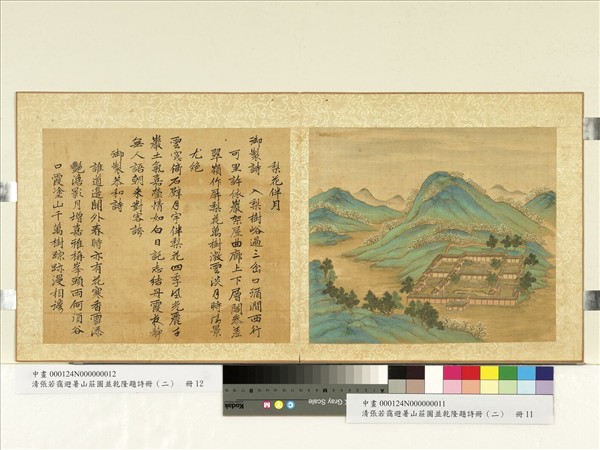 梨花伴月
御製詩 入梨樹峪過三岔口循澗西行
可里許依巖架屋曲廊上下層閣參差
翠嶺作屏梨花萬樹微雲淡月時清景
尤絕
雲窗倚石壁月宇伴梨花四季風光麗千
巖土氣嘉瑩情如白日託志結丹霞夜靜
無人語朝來對客誇
御製恭和詩
誰道邊關外春時亦有花寒香雪添
艷澹影月增嘉雅峯頭雨何須谷
口霞山千萬樹踪跡漫相
中畫 000124N000000012
清張若靄避暑山莊圖並乾隆題詩冊（二） 冊 12
Kodak Gray Scale
中畫 000124N000000011
清張若靄避暑山莊圖並乾隆題詩冊（二） 冊 11